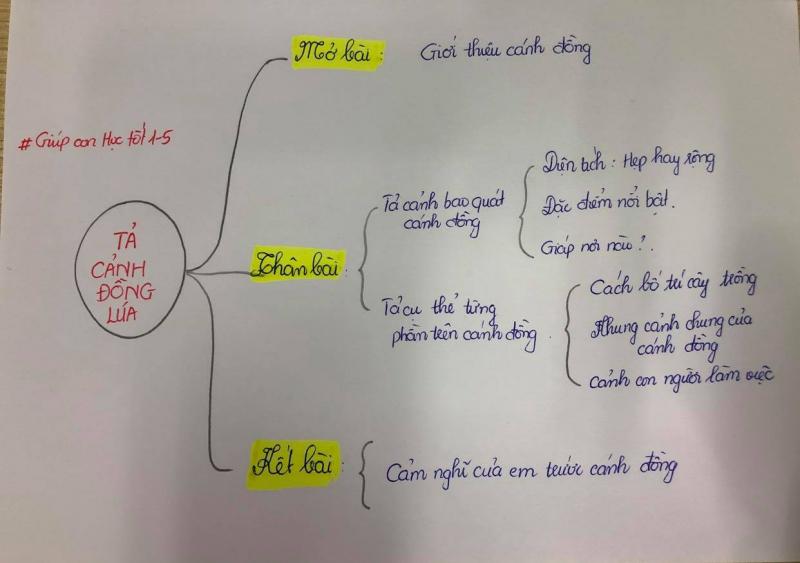 # Giúp con Học tốt 1-5
TẢ
CẢNH
ĐỒNG
LÚA
Mở bài :
Giới thiệu cánh đồng
Thân bài :
Tả cảnh bao quát
cánh đồng
Diện tích : Hẹp hay rộng
Đặc điểm nổi bật.
Giáp nơi nào ?.
Tả cụ thể từng
phần trên cánh đồng.
Cách bố trí cây trồng
Khung cảnh chung của
cánh đồng
Cảnh con người làm việc
Kết bài :
Cảm nghĩ của em trước cánh đồng